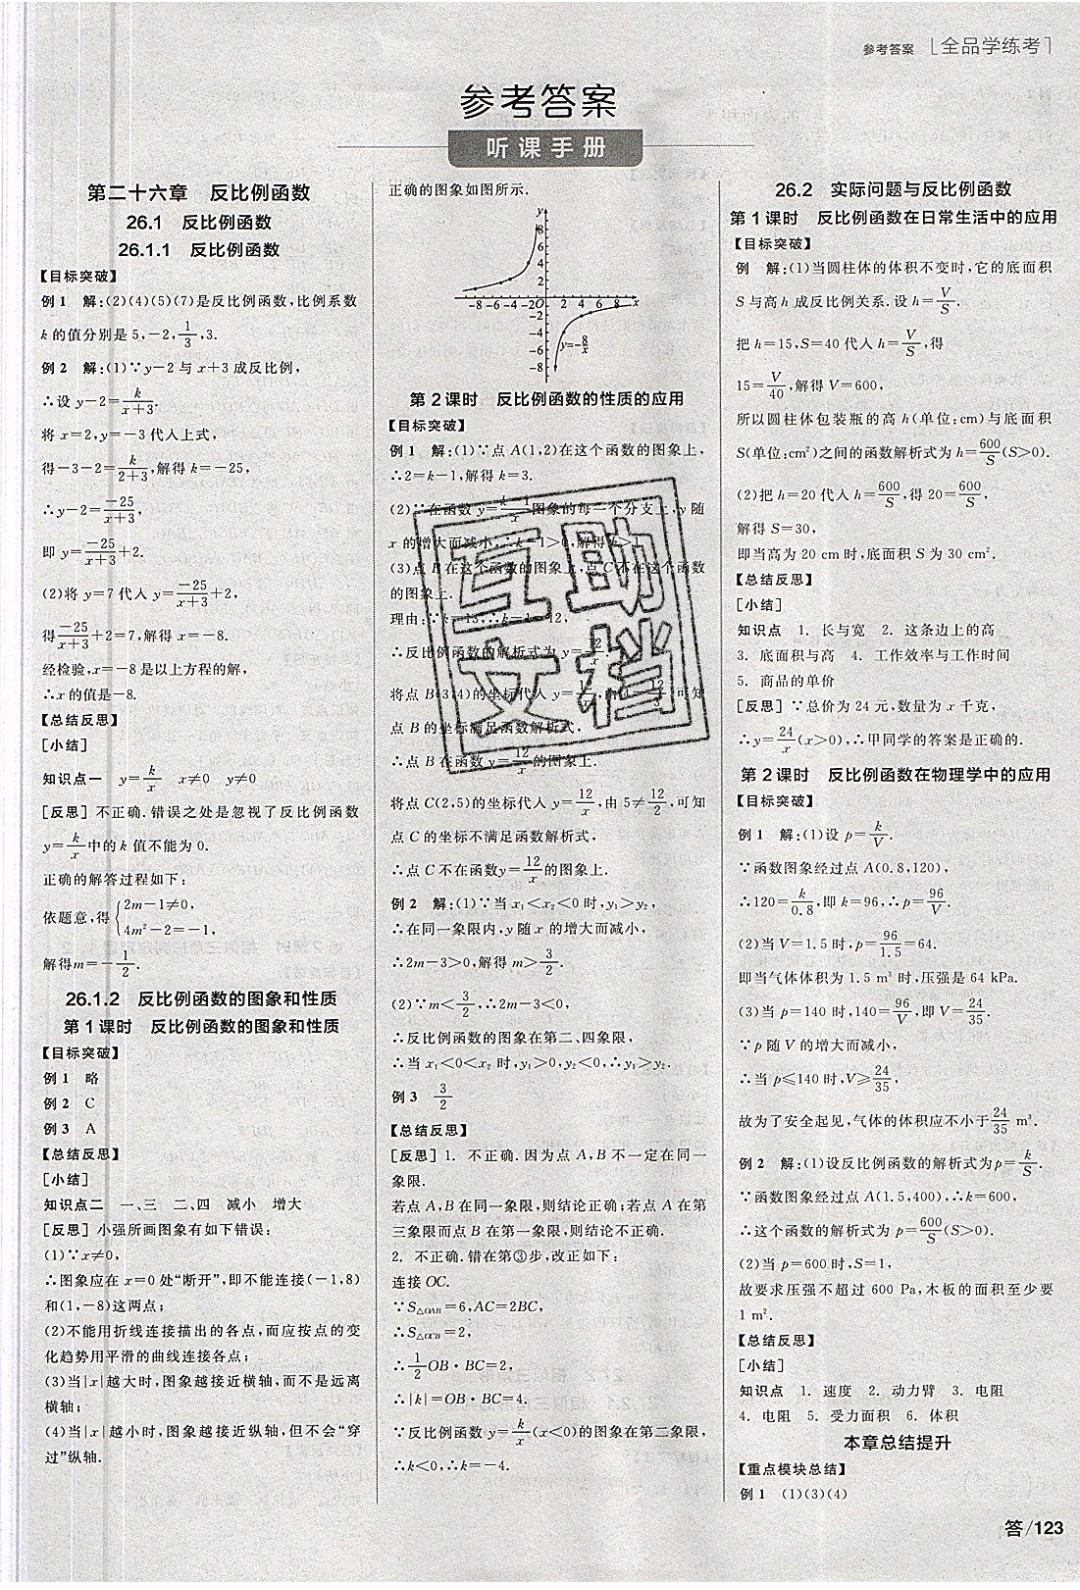 参考答案 [全品学练考]
参考答案
听课手册
第二十六章 反比例函数
26.1 反比例函数
26.1.1 反比例函数
【目标突破】
例1 解:(2)(4)(5)(7)是反比例函数,比例系数
k的值分别是5,-2,1/3,3.
例2 解:(1)∵y-2与x+3成反比例,
∴设y-2=k/(x+3).
将x=2,y=-3代入上式,
得-3-2=k/(2+3),解得k=-25,
∴y-2=-25/(x+3),
即y=-25/(x+3)+2.
(2)将y=7代入y=-25/(x+3)+2,
得-25/(x+3)+2=7,解得x=-8.
经检验,x=-8是以上方程的解,
∴x的值是-8.
【总结反思】
[小结]
知识点一 y=k/x x≠0 y≠0
[反思] 不正确.错误之处是忽视了反比例函数
y=k/x中的k值不能为0.
正确的解答过程如下:
依题意,得{2m-1≠0,
4m²-2=-1,
解得m=-1/2.
26.1.2 反比例函数的图象和性质
第1课时 反比例函数的图象和性质
【目标突破】
例1 略
例2 C
例3 A
【总结反思】
[小结]
知识点二 一、三 二、四 减小 增大
[反思] 小强所画图象有如下错误:
(1)∵x≠0,
∴图象应在x=0处“断开”,即不能连接(-1,8)
和(1,-8)这两点;
(2)不能用折线连接描出的各点,而应按点的变
化趋势用平滑的曲线连接各点;
(3)当|x|越大时,图象越接近横轴,而不是远离
横轴;
(4)当|x|越小时,图象越接近纵轴,但不会“穿
过”纵轴.
正确的图象如图所示.
y
8
6
4
2
-8 -6 -4 -2 O 2 4 6 8 x
-2
-4
-6
-8
y=-8/x
第2课时 反比例函数的性质的应用
【目标突破】
例1 解:(1)∵点A(1,2)在这个函数的图象上,
∴2=k-1,解得k=3.
(2)∵在函数y=(k-1)/x图象的每一个分支上,y随
x的增大而减小,∴k-1>0,解得k>1.
(3)点B在这个函数的图象上,点C不在这个函数
的图象上.
理由:∵k=13,∴k-1=12,
∴反比例函数的解析式为y=12/x.
将点B(3,4)的坐标代入y=12/x,由4=12/3,可知
点B的坐标满足函数解析式,
∴点B在函数y=12/x的图象上.
将点C(2,5)的坐标代入y=12/x,由5≠12/2,可知
点C的坐标不满足函数解析式,
∴点C不在函数y=12/x的图象上.
例2 解:(1)∵当x₁<x₂<0时,y₁>y₂,
∴在同一象限内,y随x的增大而减小,
∴2m-3>0,解得m>3/2.
(2)∵m<3/2,∴2m-3<0,
∴反比例函数的图象在第二、四象限,
∴当x₁<0<x₂时,y₁>0,y₂<0,∴y₁>y₂.
例3 3/2
【总结反思】
[反思] 1. 不正确.因为点A,B不一定在同一
象限.
若点A,B在同一象限,则结论正确;若点A在第
三象限而点B在第一象限,则结论不正确.
2. 不正确.错在第③步,改正如下:
连接OC.
∵S△OAB=6,AC=2BC,
∴S△OCB=2,
∴1/2OB·BC=2,
∴|k|=OB·BC=4.
∵反比例函数y=k/x(x<0)的图象在第二象限,
∴k<0,∴k=-4.
26.2 实际问题与反比例函数
第1课时 反比例函数在日常生活中的应用
【目标突破】
例 解:(1)当圆柱体的体积不变时,它的底面积
S与高h成反比例关系.设h=V/S.
把h=15,S=40代入h=V/S,得
15=V/40,解得V=600,
所以圆柱体包装瓶的高h(单位:cm)与底面积
S(单位:cm²)之间的函数解析式为h=600/S(S>0).
(2)把h=20代入h=600/S,得20=600/S,
解得S=30,
即当高为20 cm时,底面积S为30 cm².
【总结反思】
[小结]
知识点 1. 长与宽 2. 这条边上的高
3. 底面积与高 4. 工作效率与工作时间
5. 商品的单价
[反思] ∵总价为24元,数量为x千克,
∴y=24/x(x>0),∴甲同学的答案是正确的.
第2课时 反比例函数在物理学中的应用
【目标突破】
例1 解:(1)设p=k/V.
∵函数图象经过点A(0.8,120),
∴120=k/0.8,即k=96,∴p=96/V.
(2)当V=1.5时,p=96/1.5=64.
即当气体体积为1.5 m³时,压强是64 kPa.
(3)当p=140时,140=96/V,即V=24/35.
∵p随V的增大而减小,
∴当p≤140时,V≥24/35,
故为了安全起见,气体的体积应不小于24/35 m³.
例2 解:(1)设反比例函数的解析式为p=k/S.
∵函数图象经过点A(1.5,400),∴k=600,
∴这个函数的解析式为p=600/S(S>0).
(2)当p=600时,S=1,
故要求压强不超过600 Pa,木板的面积至少要
1 m².
【总结反思】
[小结]
知识点 1. 速度 2. 动力臂 3. 电阻
4. 电阻 5. 受力面积 6. 体积
本章总结提升
【重点模块总结】
例1 (1)(3)(4)
答/123
互助
文档